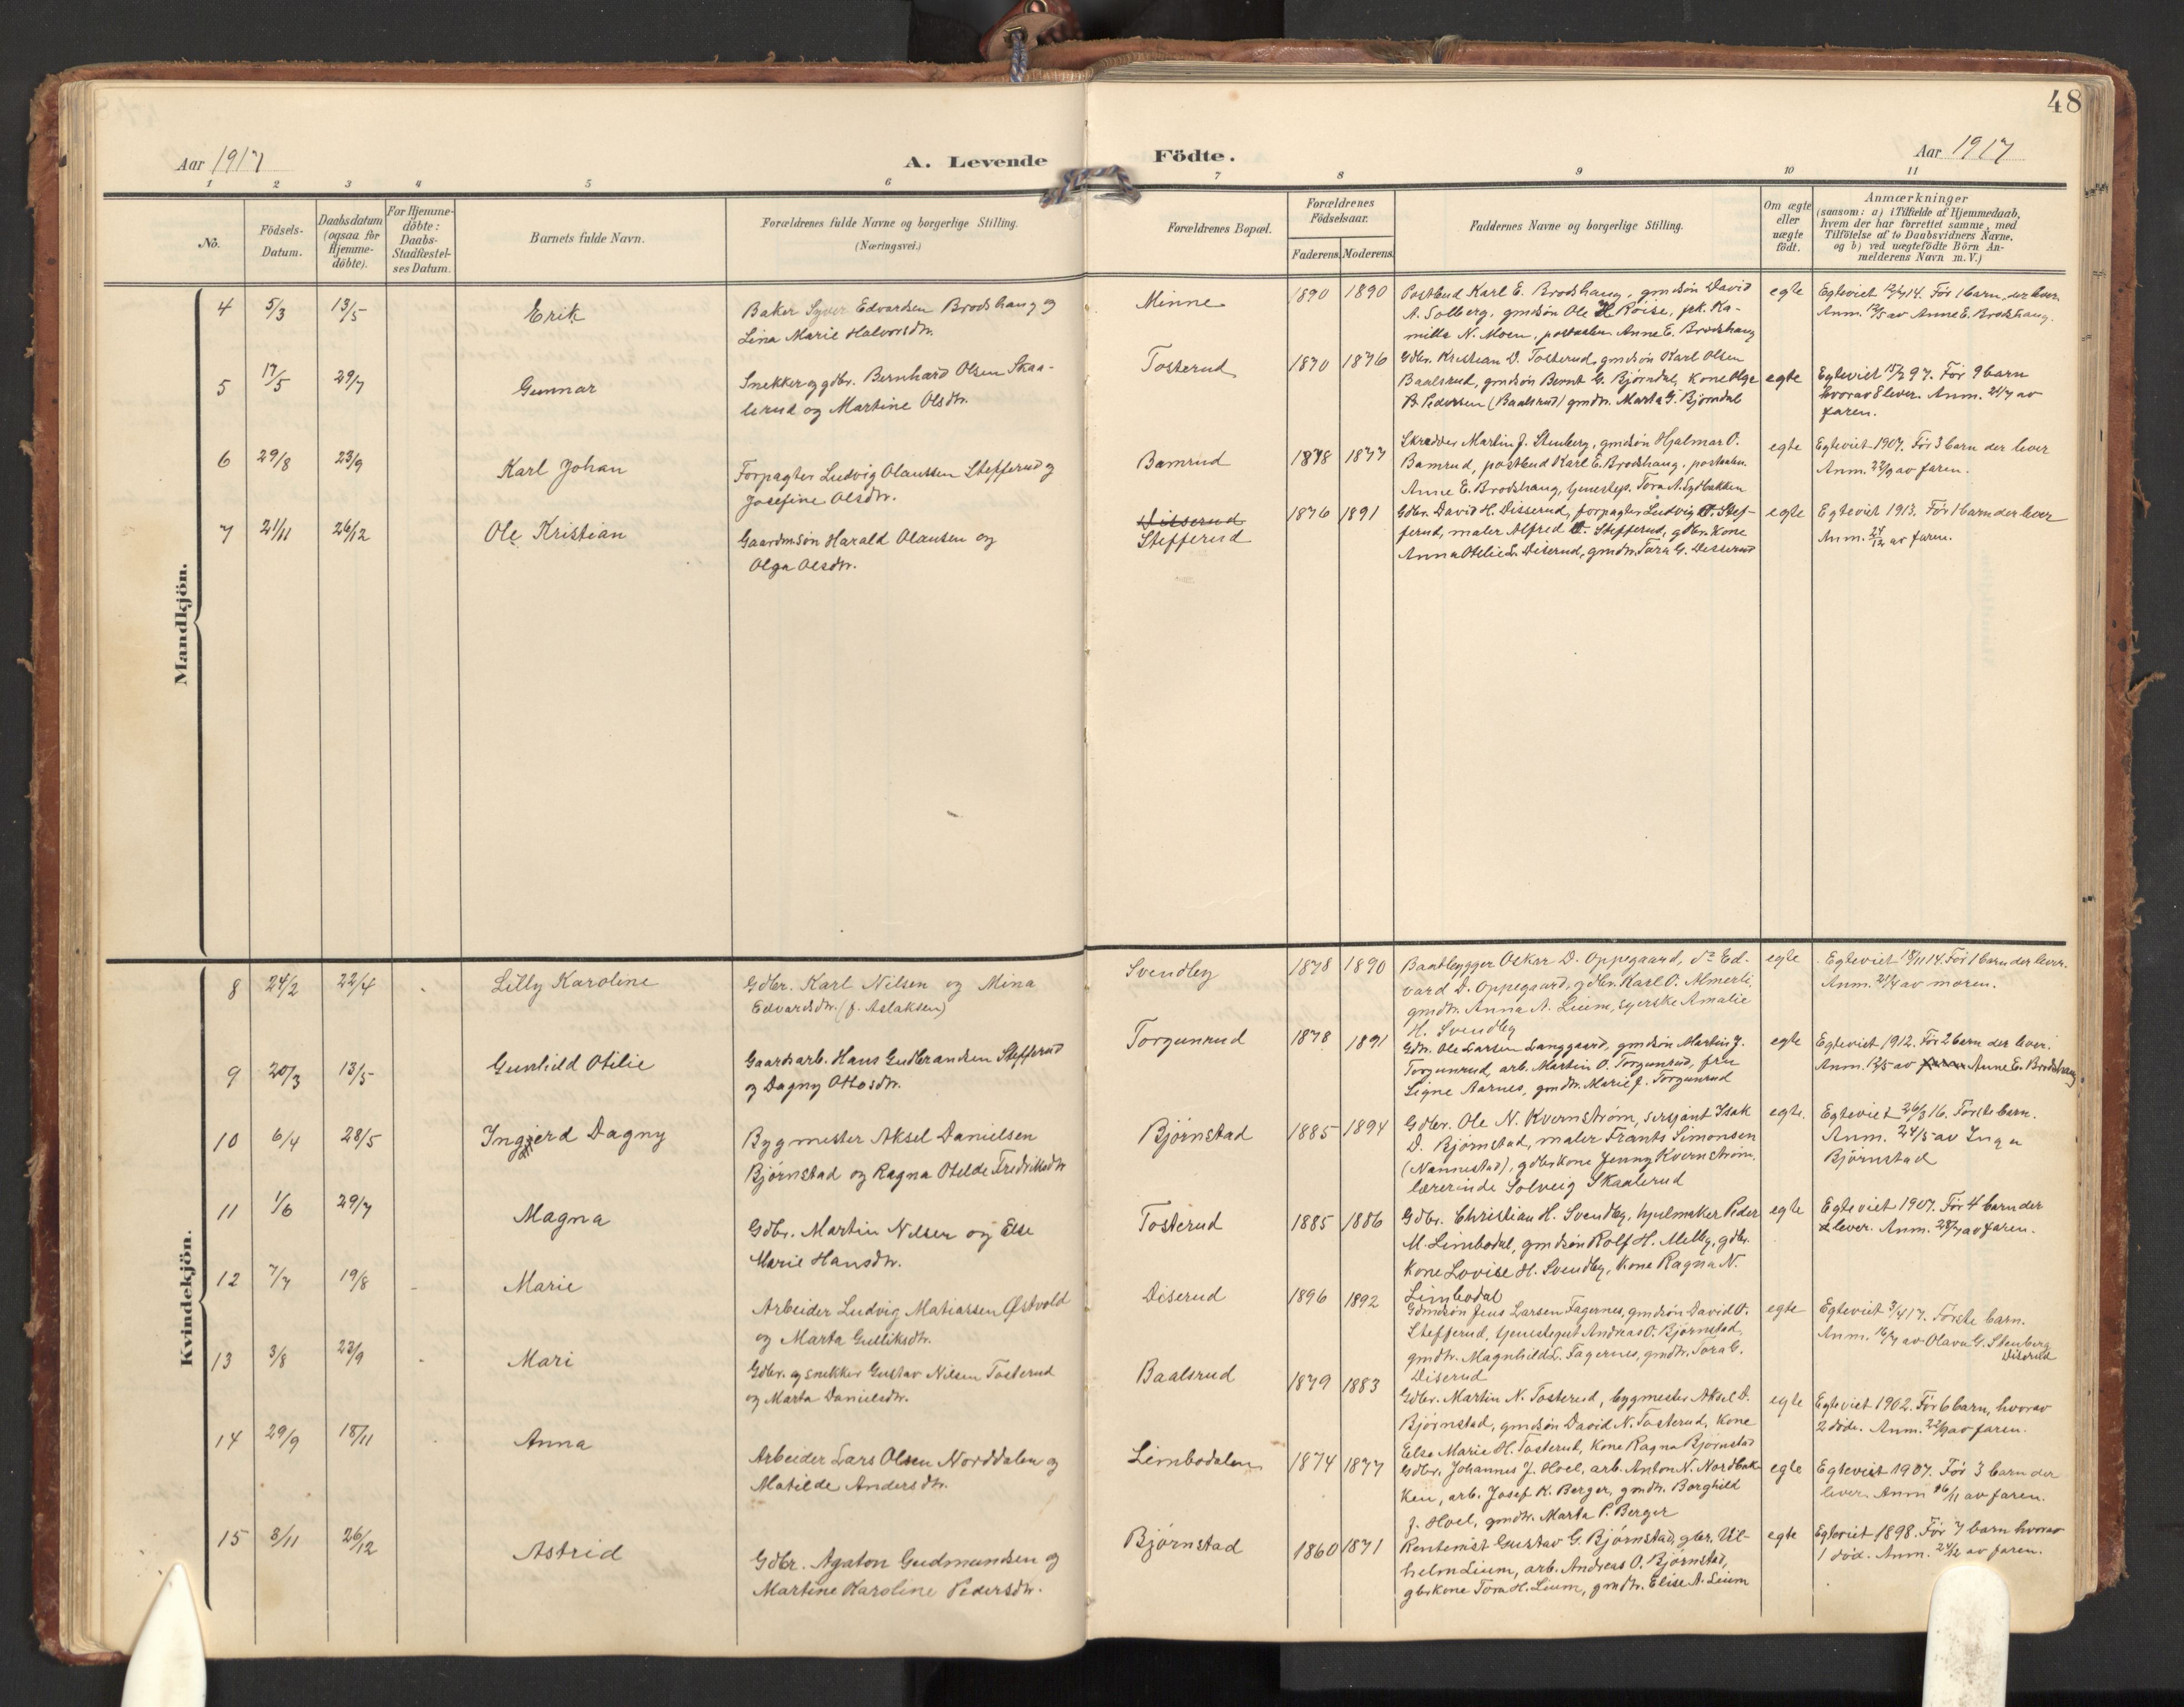 48
Aar 1917
A. Levende Födte.
Aar 1917
1 2 3 4 5 6 7 8 9 10 11
No.
Födsels-
Datum.
Daabsdatum
(ogsaa for
Hjemme-
döbte).
For Hjemme-
döbte:
Daabs-
Stadfæstel-
ses Datum.
Barnets fulde Navn.
Forældrenes fulde Navne og borgerlige Stilling.
(Næringsvei.)
Forældrenes Bopæl.
Forældrenes
Födselsaar.
Faderens. Moderens.
Faddernes Navne og borgerlige Stilling.
Om ægte
eller
uægte
födt.
Anmærkninger
(saasom: a) i Tilfælde af Hjemmedaab,
hvem der har forrettet samme, med
Tilföielse af to Daabsvidners Navne,
og b) ved uægtefödte Börn An-
melderens Navn m. V.)
Mandkjön.
4 5/3 13/5 Erik
Baker Syver Edvardsen Brodshaug og
Lina Marie Halvorsdtr.
Minne 1890 1890
Postbud Karl E. Brodshaug, gmdsön David
A. Solberg, gmdsön Ole H Röise, pk. Ka-
milla N. Moen, postaabn. Anne E. Brodshaug
egte
Egteviet 12/4 14. Før 1 barn, der lever.
Anm. 12/5 av Anne E. Brodshaug.
5 17/5 29/7 Gunnar
Snekker og gdbr. Bernhard Olsen Skaa-
lerud og Martine Olsdtr.
Tosterud 1870 1876
Gdbr. Kristian D. Tosterud, gmdsön Karl Olsen
Baalsrud, gmdsön Bernt G. Bjørndal, kone Olga
B. Pedersen (Baalsrud) gmdtr. Marta G. Bjørndal
egte
Egteviet 15/7 97. Før 9 barn
hvorav 8 lever. Anm. 21/7 av
faren.
6 29/8 23/9 Karl Johan
Forpagter Ludvig Olaussen Stefferud og
Josefine Olsdtr.
Bamrud 1878 1877
Skrædder Martin J. Stenberg, gmdsön Hjalmar O.
Bamrud, postbud Karl E. Brodshaug, postaabn.
Anne E. Brodshaug, tjenestep. Tora A. Sydbakken
egte
Egteviet 1907. Før 3 barn der lever
Anm. 22/9 av faren.
7 21/11 26/12 Ole Kristian
Gaardmsøn Harald Olausen og
Olga Olsdtr.
Diserud
Stefferud 1876 1891
Gdbr. David H. Disserud, forpagter Ludvig O. Stef-
ferud, maler Alfred O. Stefferud, gdbr. kone
Anna Otelie L. Diserud, gmdtr. Tora G. Disserud
egte
Egteviet 1913. Før 1 barn der lever
Anm. 24/12 av faren.
Kvindekjön.
8 24/2 22/4 Lilly Karoline
Gdbr. Karl Nilsen og Mina
Edvardsdtr. (f. Aslaksen)
Svendby 1878 1890
Baatbygger Oskar D. Oppegaard, do Ed-
vard D. Oppegaard, gdbr. Karl O. Almerli,
gmdtr. Anna A. Lium, syerske Amalie
H. Svendby
egte
Egteviet 18/11 14. Før 1 barn der lever.
Anm. 21/4 av moren.
9 20/3 13/5 Gunhild Otilie
Gaardsarb. Hans Gudbrandsen Stefferud
og Dagny Ottosdtr.
Torgunrud 1878 1891
Gdbr. Ole Larsen Langgaard, gmdsön Martin J.
Torgunrud, arb. Martin O. Torgunrud, fru
Signe Aarnes, gmdtr. Marie J. Torgunrud
egte
Egteviet 1912. Før 2 barn der lever.
Anm. 12/5 av faren Anne E. Brodshaug
10 6/4 28/5 Ingjerd Dagny
Bygmester Aksel Danielsen
Bjørnstad og Ragna Otelde Fredriksdtr
Bjørnstad 1885 1894
Gdbr. Ole N. Kvernstrøm, sersjant Isak
D. Bjørnstad, maler Frants Simonsen
(Nannestad), gdbrkone Jenny Kvernstrøm,
lærerinde Solveig Skaalerud
egte.
Egteviet 26/3 16. Første barn.
Anm. 24/5 av Inga
Bjørnstad
11 1/6 29/7 Magna
Gdbr. Martin Nilsen og Else
Marie Hansdtr.
Tosterud 1885 1886
Gdbr. Christian H. Svendby, hjulmaker Peder
M. Limbodal, gmdsøn Rolf H. Melby, gdbr.
kone Lovise H. Svendby, kone Ragna N.
Limbodal
egte
Egteviet 1907. Før 4 barn der
lever. Anm. 28/7 av faren.
12 7/7 19/8 Marie
Arbeider Ludvig Matiassen Østvold
og Marta Gulliksdtr.
Diserud 1896 1892
Gdmdsön Jens Larsen Fagernes, gmdsön David O.
Stefferud, tjenestegut Andreas O. Bjørnstad,
gmdtr. Magnhild L. Fagernes, gmdtr. Tora G.
Diserud
egte
Egteviet 3/4 17. Første barn.
Anm. 16/7 av Olava G. Stenberg
Diserud
13 3/8 23/9 Mari
Gdbr. og snekker Gustav Nilsen Tosterud
og Marta Danielsdtr.
Baalsrud 1879 1883
Gdbr. Martin N. Tosterud, bygmester Aksel D.
Bjørnstad, gmdsön David N. Tosterud, kone
Else Marie H. Tosterud, kone Ragna Bjørnstad
egte
Egteviet 1902. Før 6 barn, hvorav
2 döde. Anm. 22/9 av faren.
14 29/9 18/11 Anna
Arbeider Lars Olsen Norddalen og
Matilde Andersdtr.
Limbodalen 1874 1877
Gdbr. Johannes J. Hoel, arb. Anton N. Nordbak-
ken, arb. Josef K. Berger, gmdtr. Borghild
J. Hoel, gmdtr. Marta P. Berger
egte
Egteviet 1907. Før 3 barn der
lever. Anm 16/11 av faren.
15 3/11 26/12 Astrid
Gdbr. Agaton Gudmundsen og
Martine Karoline Pedersdtr.
Bjørnstad 1860 1871
Rentenist Gustav G. Bjørnstad, gbr. Vil-
helm Lium, arb. Andreas O. Bjørnstad,
gbrkone Tora H. Lium, gmdtr. Elise A. Lium
egte
Egteviet 1898. Før 7 barn hvorav
1 död. Anm. 24/12 av faren.